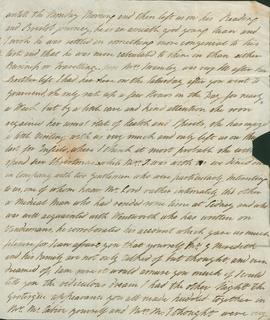 untill the Monday Morning and then left us on his Reading
and Bristol journey, he is an amiable good young man and
I wish he was settled in something more congenial to his
that and that he was more calculated to shine in than either
Business or Travelling. Mrs. was only the
Brother left I had her here on the Saturday after you went &
you would she only not up a few Hours in the Day, for nearly
a Week but by a both care and kind attention she soon
regained her usual state of Health and Spirits, she has enjoyed
a both visiting with us very much and only left us on the
last for where I think it most probable she will
spend her Christmas with Mrs. I was with we dined once
in company with two Gentlemen who were particularly interesting
to us, one of whom knew Mr. Lord rather intimately the other
a Medical Man who had resided some time at Sydney and who
was well acquainted with Wentworth who has written on
Vandiemans, he corroborates his account which gave us much
pleasure for I can assure you that yourself Mr. G Meredith
and his Family are not only talked of but thought and even
dreamed of, I am sure it would amuse you much if I could
tell you the ridiculous Dream I had the other Night the
Grotesque appearance you all made huddled together in
Mr. Mc. Cabin yourself and Mrs. M. I thought were very